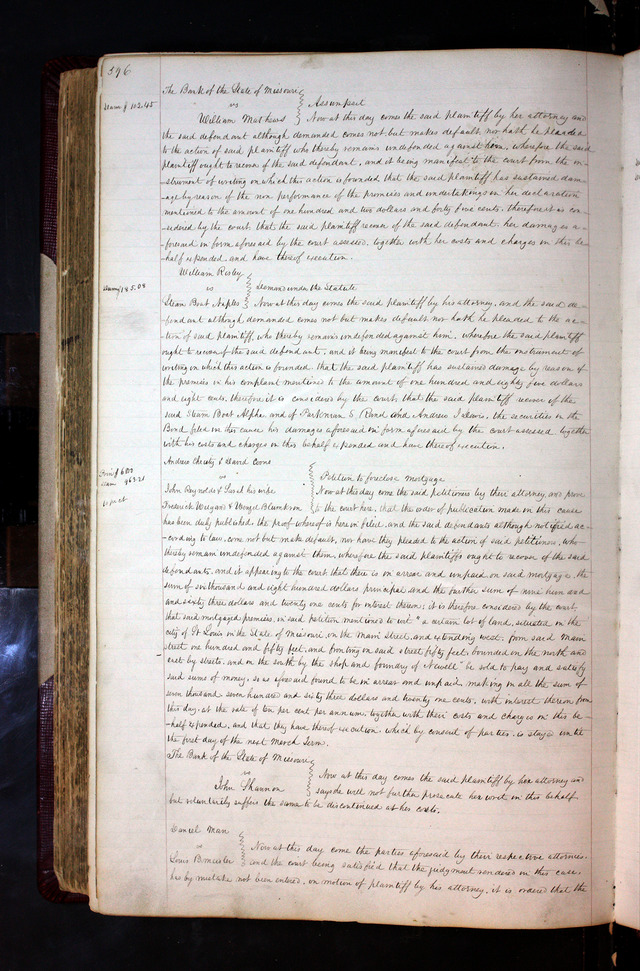 396
The Bank of the State of Missouri
Dam $ 102.45
vs
Assumpsit
William Mathews
Now at this day comes the said plaintiff by her attorney and
the said defendant although demanded comes not but makes default, nor hath he pleaded
to the action of said plaintiff who thereby remains undefended against him, wherefore the said
plaintiff ought to recover of the said defendant, and it being manifest to the court from the in-
-strument of writing on which this action is founded that the said plaintiff has sustained dam-
-age by reason of the non performance of the promises and undertakings in her declaration
mentioned to the amount of one hundred and two dollars and forty five cents. therefore it is con-
-sidered by the court that the said plaintiff recover of the said defendant her damages a-
-foresaid in form aforesaid by the court assessed, together with her costs and charges in this be-
-half expended, and have thereof execution.
William Risley
Dam $ 185.08
vs
Demand under the Statute
Steam Boat Naples
Now at this day comes the said plaintiff by his attorney, and the said de-
-fendant although demanded comes not but makes default nor hath he pleaded to the ac-
-tion of said plaintiff, who thereby remains undefended against him, wherefore the said plaintiff
ought to recover of the said defendant, and it being manifest to the court from the instrument of
writing on which this action is founded, that the said plaintiff has sustained damage by reason of
the premises in his complaint mentioned to the amount of one hundred and eighty five dollars
and eight cents, therefore it is considered by the court, that the said plaintiff recover of the
said Steam Boat Alpha and of Parkinson S. and Andrew the securities in the
Bond filed in this cause his damages aforesaid in form aforesaid by the court assessed together
with his costs and charges in this behalf expended and have thereof execution.
Andrew Christy & David Coons
Prin $ 6800
Dam 963.21
vs
Petition to foreclose mortgage
John Reynolds & his wife
Now at this day come the said petitioners by their attorney and prove
to the court here, that the order of publication made in this cause
has been duly published, the proof whereof is here in filed, and the said defendants although notified ac-
-cording to law, come not but make default, nor have they pleaded to the action of said petitioners, who
thereby remain undefended against them, wherefore the said plaintiffs ought to recover of the said
defendants. and it appearing to the court that there is in arrear and unpaid on said mortgage, the
sum of six thousand and eight hundred dollars principal and the further sum of nine hundred
and sixty three dollars and twenty one cents for interest thereon; it is therefore considered by the court,
that said mortgaged premises, in said petition mentioned to wit "a certain lot of land, situated in the
city of St Louis in the State of Missouri, on the Main Street, and extending west, from said Main
street one hundred and fifty feet, and fronting on said street fifty feet, bounded on the north and
east by streets, and on the south by the shop and boundary of Newell" be sold to pay and satisfy
said sums of money, so as aforesaid found to be in arrear and unpaid, making in all the sum of
seven thousand seven hundred and sixty three dollars and twenty one cents, with interest thereon from
this day, at the rate of ten per cent per annum, together with their costs and charges in this be-
-half expended, and that they have thereof execution, which by consent of parties, is stayed until
the first day of the next March Term.
The Bank of the State of Missouri
vs
John Shannon
Now at this day comes the said plaintiff by her attorney and
says she will not further prosecute her writ in this behalf
but voluntarily suffers the same to be discontinued at her costs.
Daniel Man
vs
Now at this day come the parties aforesaid by their respective attornies.
and the court being satisfied that the judgment rendered in this case,
has by mistake not been entered, on motion of plaintiff by his attorney, it is ordered that the